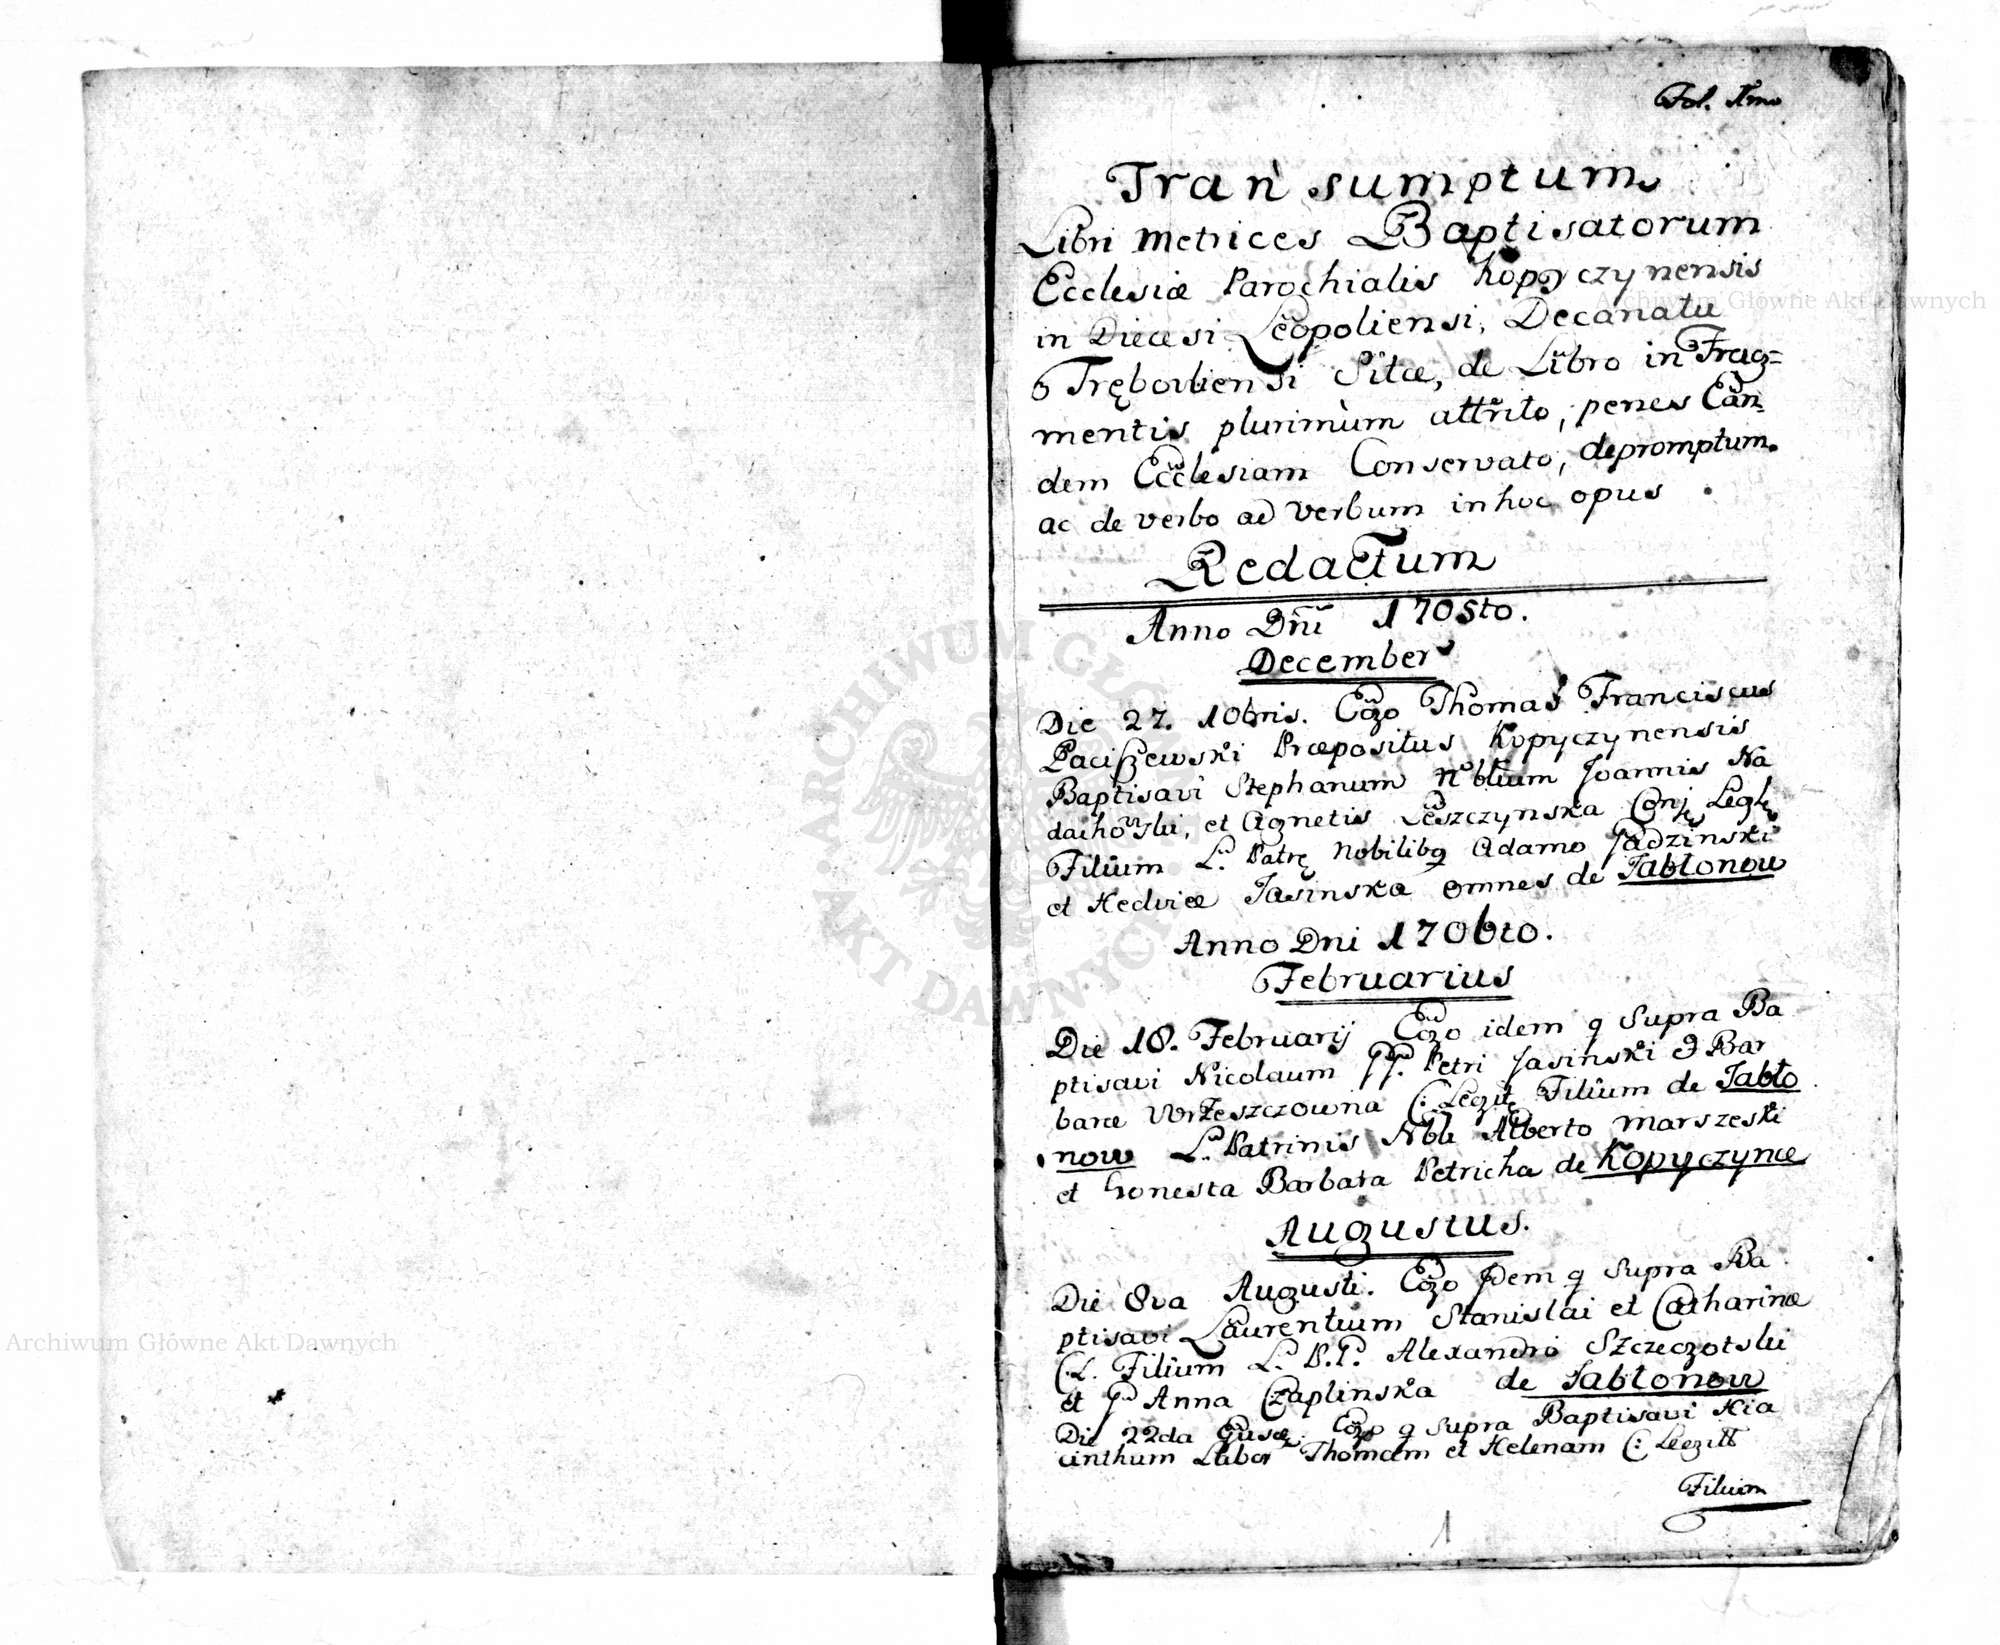 Fol. 1mo
Transumptum
Libri Metrices Baptisatorum
Ecclesiæ Parochialis Kopyczynensis
in Diæcesi Leopoliensi, Decanatu
Trębovliensi Sitæ, de Libro in Frag=
mentis plurimùm attrito, penes Ean
dem Ecclesiam Conservato, depromptum
ac de verbo ad verbum in hoc opus
Redactum
Anno Dñi 1705to.
December
Die 27. 10bris. Ego Thomas Franciscus
Paciszewski Præpositus Kopyczynensis
Baptisavi Stephanum Noblium Joannis Na
dachowski, et Agnetis Leszczynska Conj. Legle
Filium L. Patrę Nobilibq Adamo Jadzinski
et Hedvice Jasinska omnes de Jabłonow
Anno Dni 1706to.
Februarius
Die 18. Februarij Ego idem q supra Ba
ptisavi Nicolaum Petri Jasinski & Bar
baræ Wrzeszczowna C: Legit Filium de Jabło
now L. Patrinis Nbli Alberto Marszeski
et honesta Barbara Petricha de Kopyczynce
Augustus.
Die 8va Augusti. Ego Idem q Supra Ba
ptisavi Laurentium Stanislai et Catharinæ
C.L. Filium L. P.P. Alexandro Szczegotski
et Anna Czaplinska de Jabłonow
Die 22da Ego q supra Baptisavi Hia
cinthum Labor Thomam et Helenam C: Legitt
Filium
1
Archiwum Główne Akt Dawnych
Archiwum Główne Akt Dawnych
ARCHIWUM GŁÓWNE AKT DAWNYCH